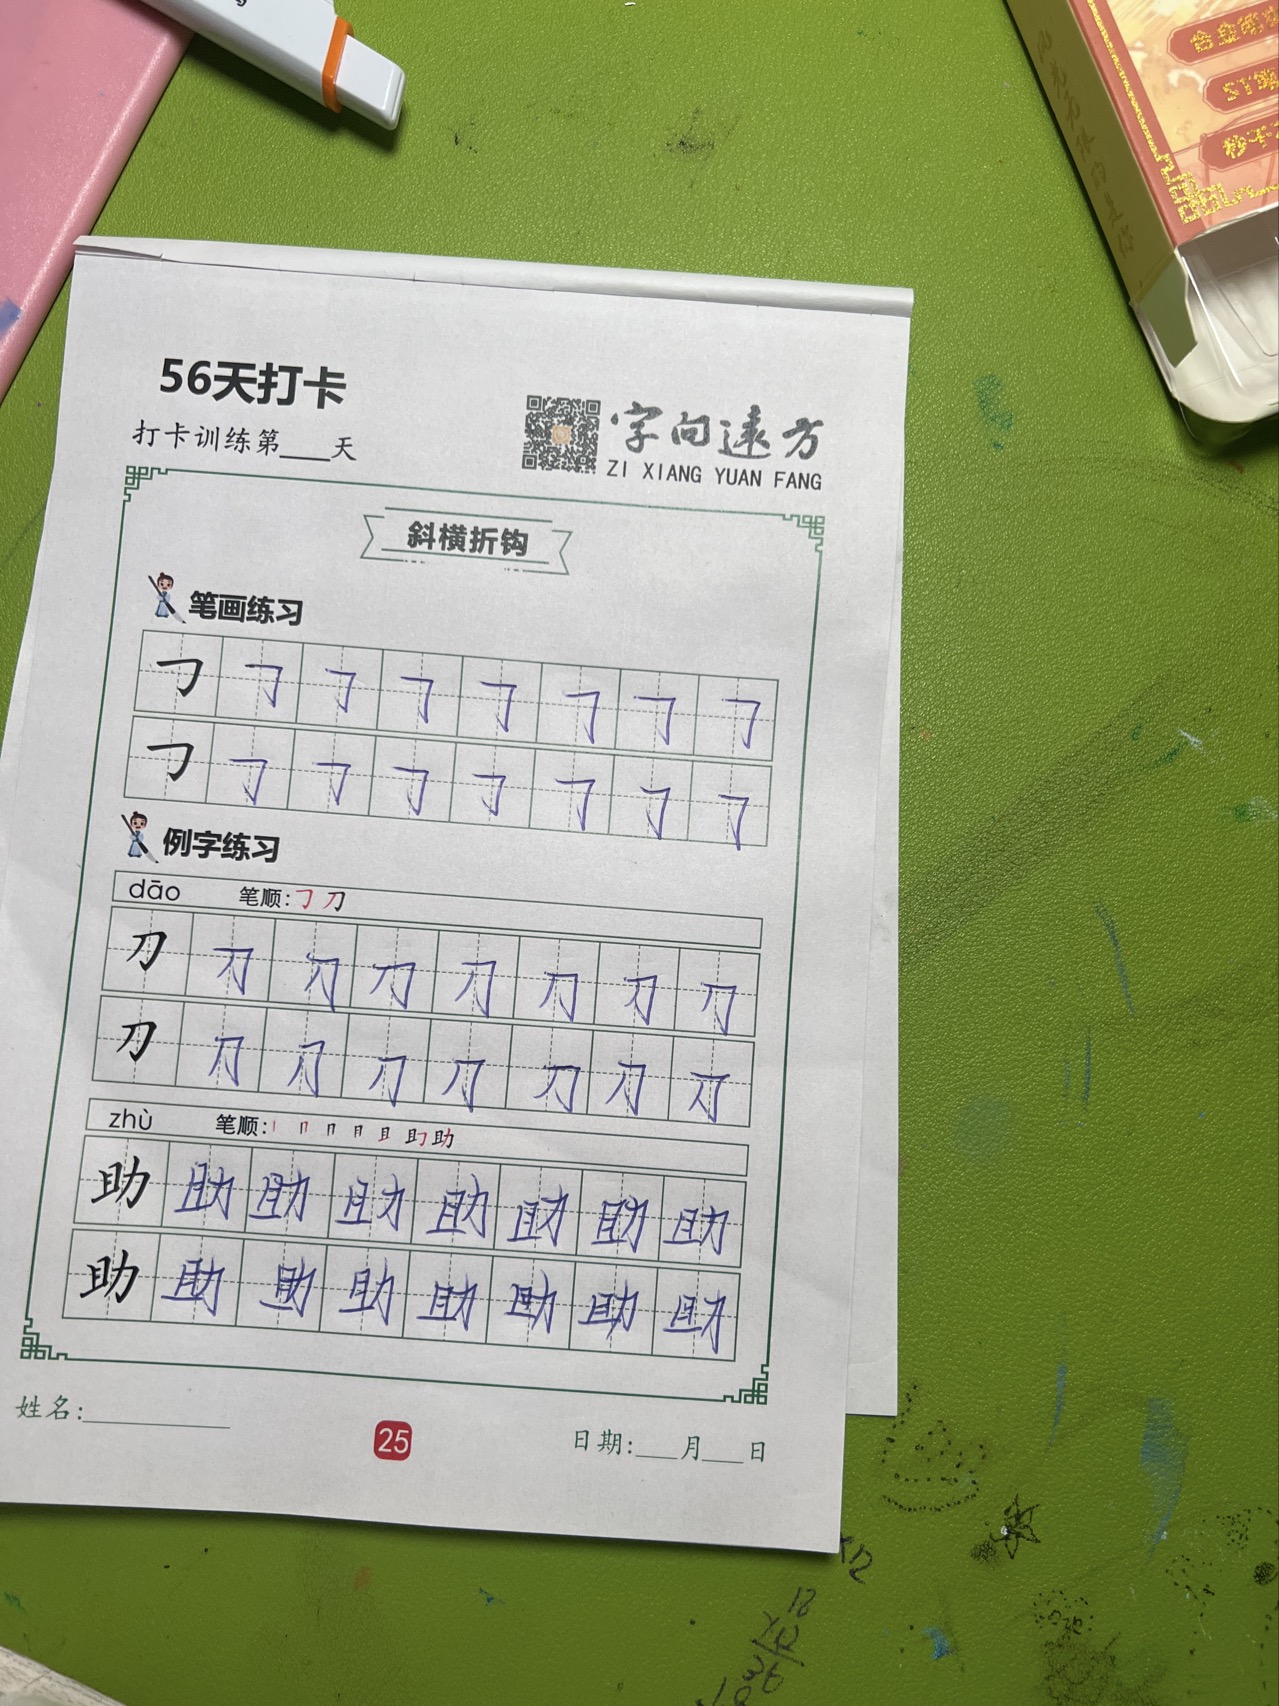 56天打卡
打卡训练第___天
字向远方
ZI XIANG YUAN FANG
斜横折钩
笔画练习
㇆ ㇆ ㇆ ㇆ ㇆ ㇆ ㇆ ㇆
㇆ ㇆ ㇆ ㇆ ㇆ ㇆ ㇆ ㇆
例字练习
dāo 笔顺:㇆ 刀
刀 刀 刀 刀 刀 刀 刀 刀
刀 刀 刀 刀 刀 刀 刀 刀
zhù 笔顺:丨 冂 冂 月 且 助 助
助 助 助 助 助 助 助 助
助 助 助 助 助 助 助 助
姓名:___
25
日期:___月___日